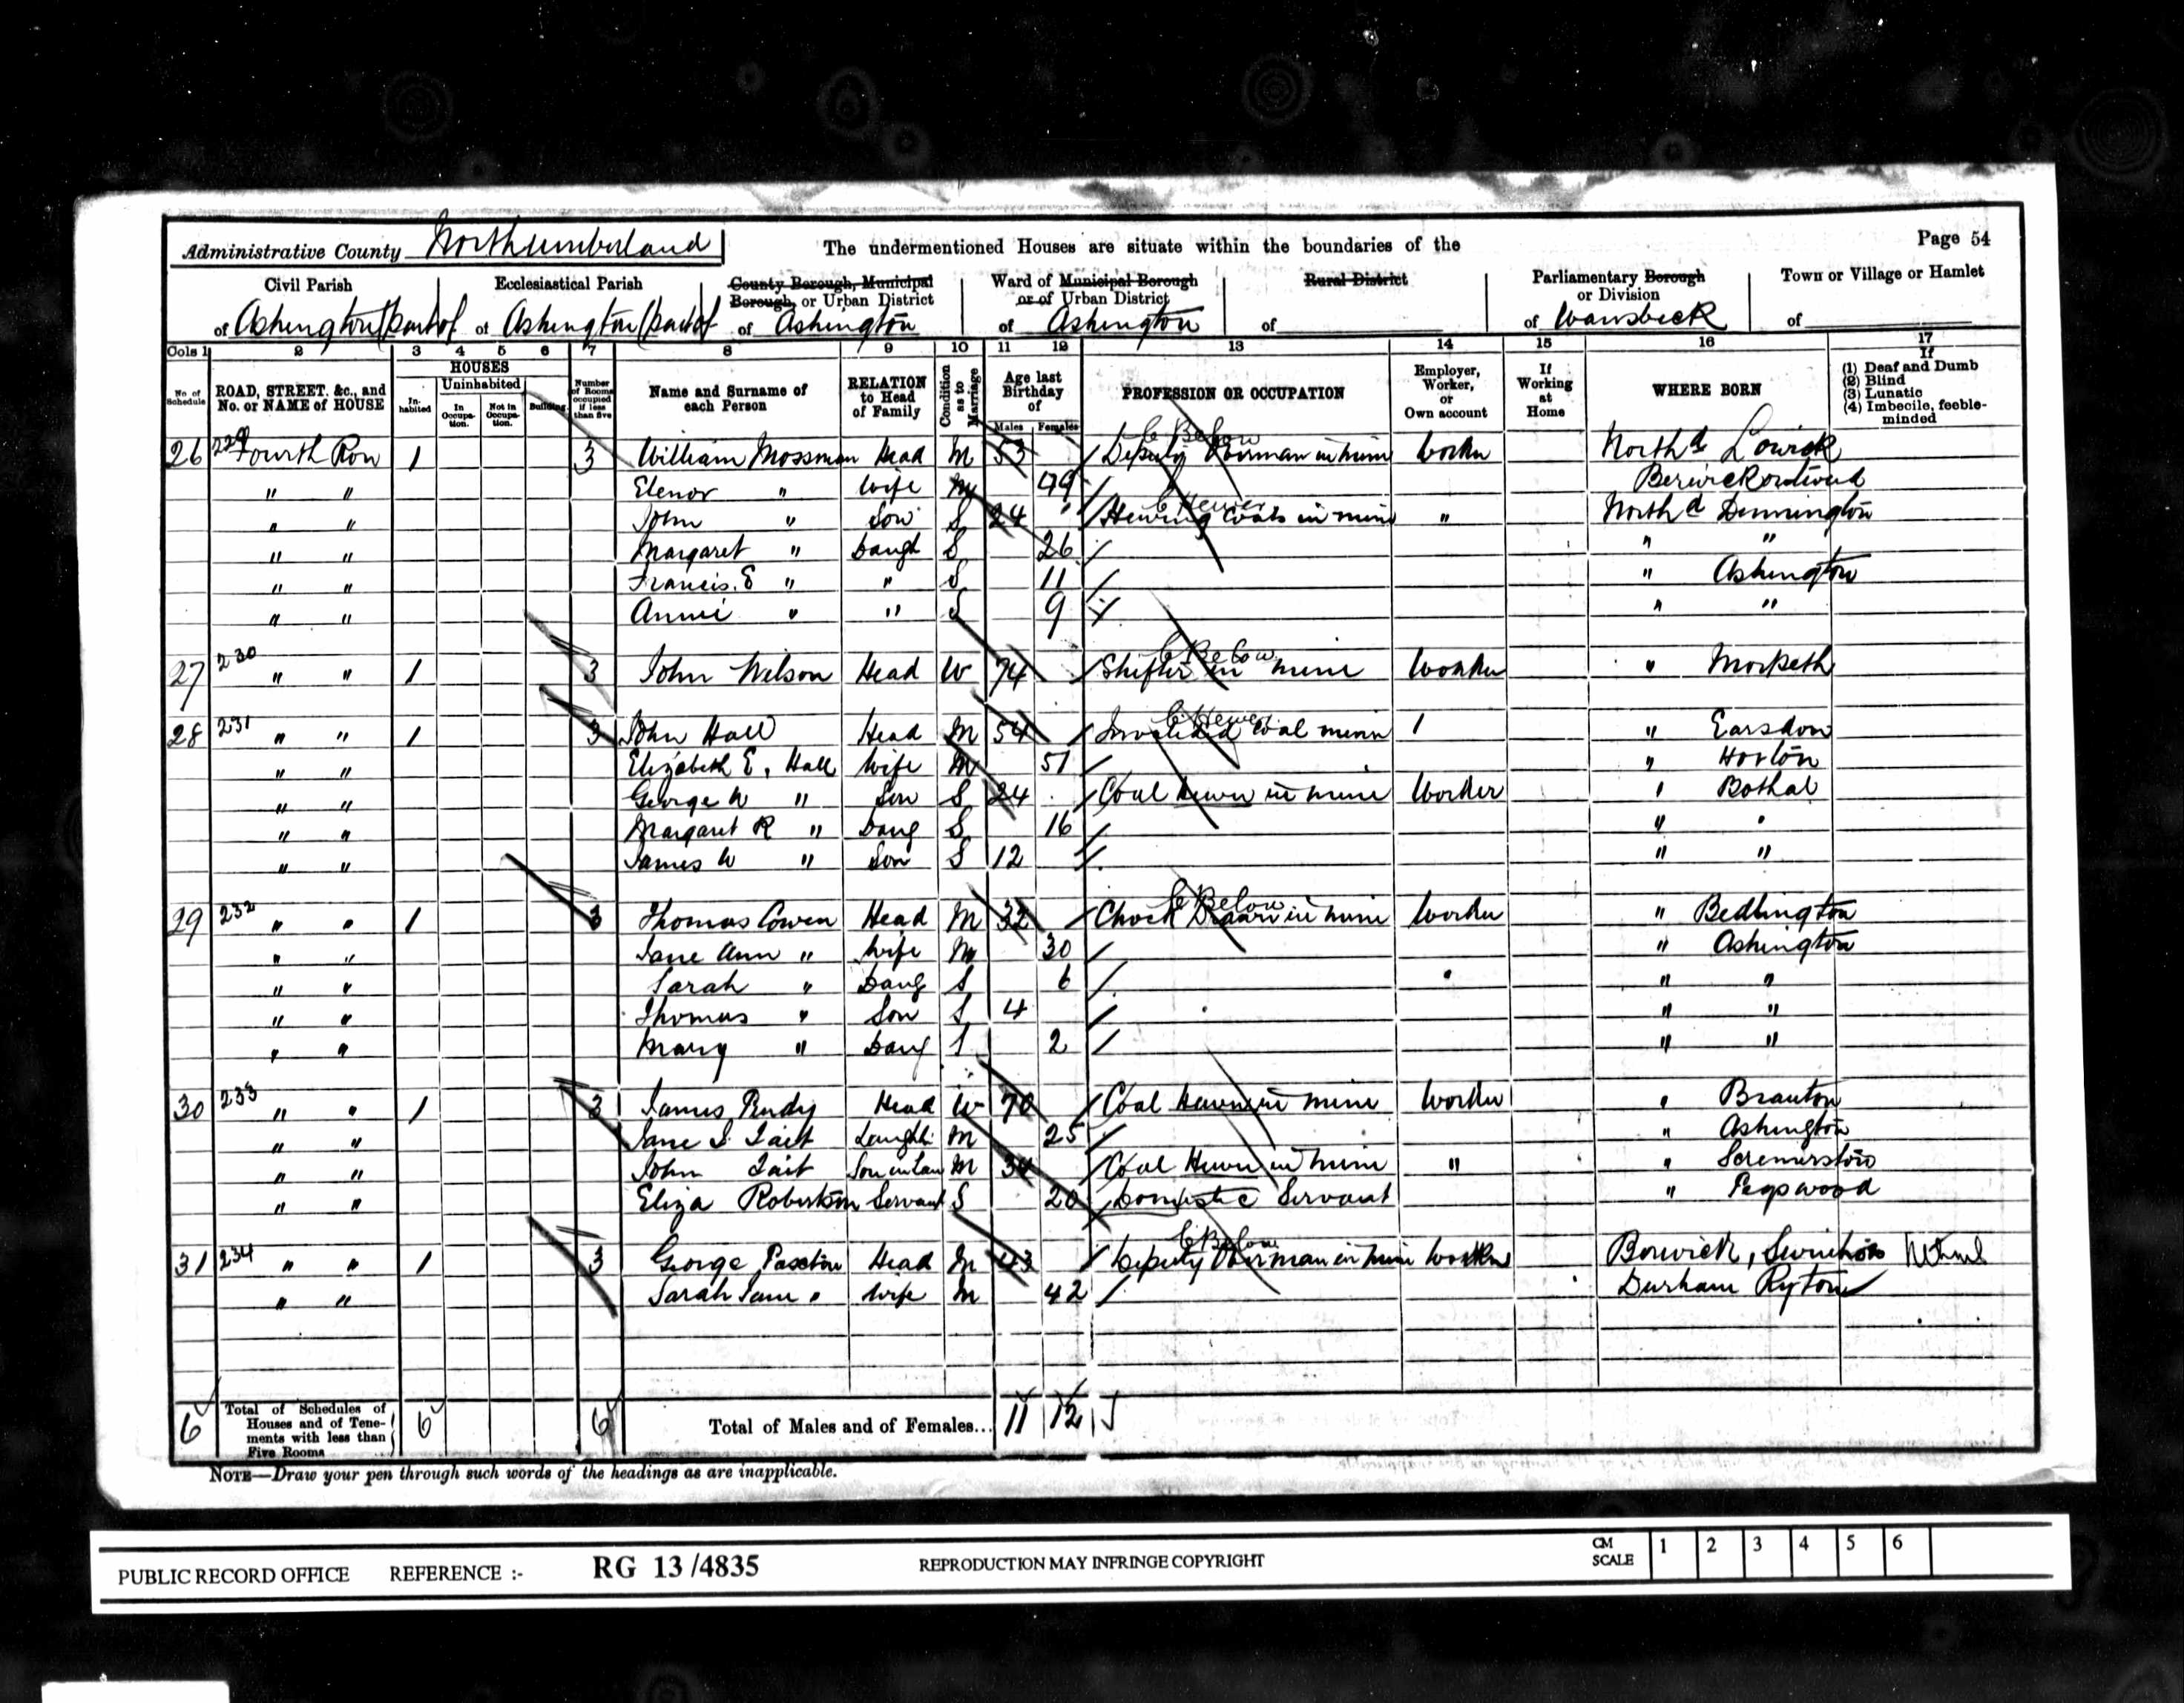 Administrative County Northumberland
The undermentioned Houses are situate within the boundaries of the
Page 54
Civil Parish of Ashington (part of
Ecclesiastical Parish of Ashington (part of
County Borough, Municipal Borough, or Urban District of Ashington
Ward of Municipal Borough or of Urban District of Ashington
Rural District of
Parliamentary Borough or Division of Wansbeck
Town or Village or Hamlet of
Cols 1 2 3 4 5 6 7 8 9 10 11 12 13 14 15 16 17
No of Schedule
ROAD, STREET, &c., and No. or NAME of HOUSE
HOUSES
In-habited
Uninhabited
In Occupa-tion.
Not in Occupa-tion.
Building
Number of Rooms occupied if less than five
Name and Surname of each Person
RELATION to Head of Family
Condition as to Marriage
Age last Birthday of
Males Females
PROFESSION OR OCCUPATION
Employer, Worker, or Own account
If Working at Home
WHERE BORN
If (1) Deaf and Dumb (2) Blind (3) Lunatic (4) Imbecile, feeble-minded
C Below
26 229 Fourth Row 1 3 William Mossman Head M 53 / Deputy Overman in mine Worker North'd Lowick
" " Elenor " Wife M 49 / Berwick on Tweed
C Hewer
" " John " Son S 24 " / Hewing Coals in mine " North'd Dennington
" " Margaret " Daugh S 26 / " "
" " Francis. E " " S 11 / " Ashington
" " Annie " " S 9 / " "
C Below
27 230 " " 1 3 John Wilson Head W 74 / Shifter in mine Worker " Morpeth
C Hewer
28 231 " " 1 3 John Hall Head M 54 / Invalided Coal miner / " Earsdon
" " Elizabeth E. Hall Wife M 51 / " Horton
" " George W " Son S 24 / Coal Hewer in mine Worker " Bothal
" " Margaret R " Daug S 16 / " "
" " James W " Son S 12 / " "
C Below
29 232 " " 1 3 Thomas Cowen Head M 32 / Chock Drawer in mine Worker " Bedlington
" " Jane Ann " Wife M 30 / " Ashington
" " Sarah " Daug S 6 / " "
" " Thomas " Son S 4 / " "
" " Mary " Daug S 2 / " "
30 233 " " 1 3 James Head W 70 / Coal Hewer in mine Worker " Branton
" " Jane S. Tait Daughtr M 25 / " Ashington
" " John Tait Son in Law M 34 / Coal Hewer in mine " " Scremerston
" " Eliza Robertson Servant S 20 / Domestic Servant " Pegswood
C Below
31 234 " " 1 3 George Paxton Head M 43 / Deputy Overman in mine Worker Berwick,
" " Sarah Jane " Wife M 42 / Durham Ryton
6 Total of Schedules of Houses and of Tene-ments with less than Five Rooms 6 6 Total of Males and of Females... 11 12
NOTE—Draw your pen through such words of the headings as are inapplicable.
PUBLIC RECORD OFFICE REFERENCE :- RG 13/4835 REPRODUCTION MAY INFRINGE COPYRIGHT CM SCALE 1 2 3 4 5 6